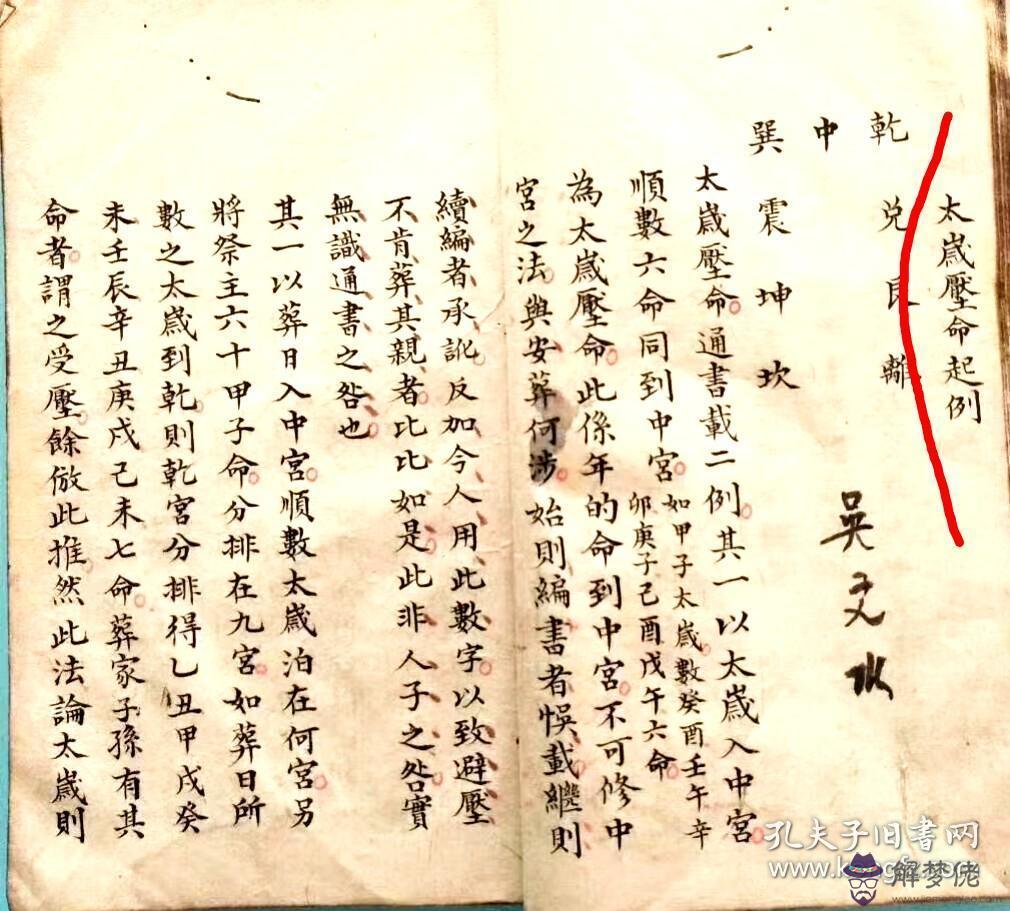 太歲壓命起例
乾
兌
艮
離
中
巽
震
坤
坎
吳文水
太歲壓命通書載二例其一以太歲入中宮
順數六命同到中宮如甲子太歲數癸酉壬午辛
卯庚子己酉戊午六命
為太歲壓命此係年的命到中宮不可修中
宮之法與安葬何涉始則編書者悞載繼則
續編者承訛反加今人用此數字以致避壓
不肯葬其親者比比如是此非人子之咎實
無識通書之咎也
其一以葬日入中宮順數太歲泊在何宮另
將祭主六十甲子命分排在九宮如葬日所
數之太歲到乾則乾宮分排得乙丑甲戌癸
未壬辰辛丑庚戌己未七命葬家子孫有其
命者謂之受壓餘倣此推然此法論太歲則
孔夫子旧书网
解梦佬